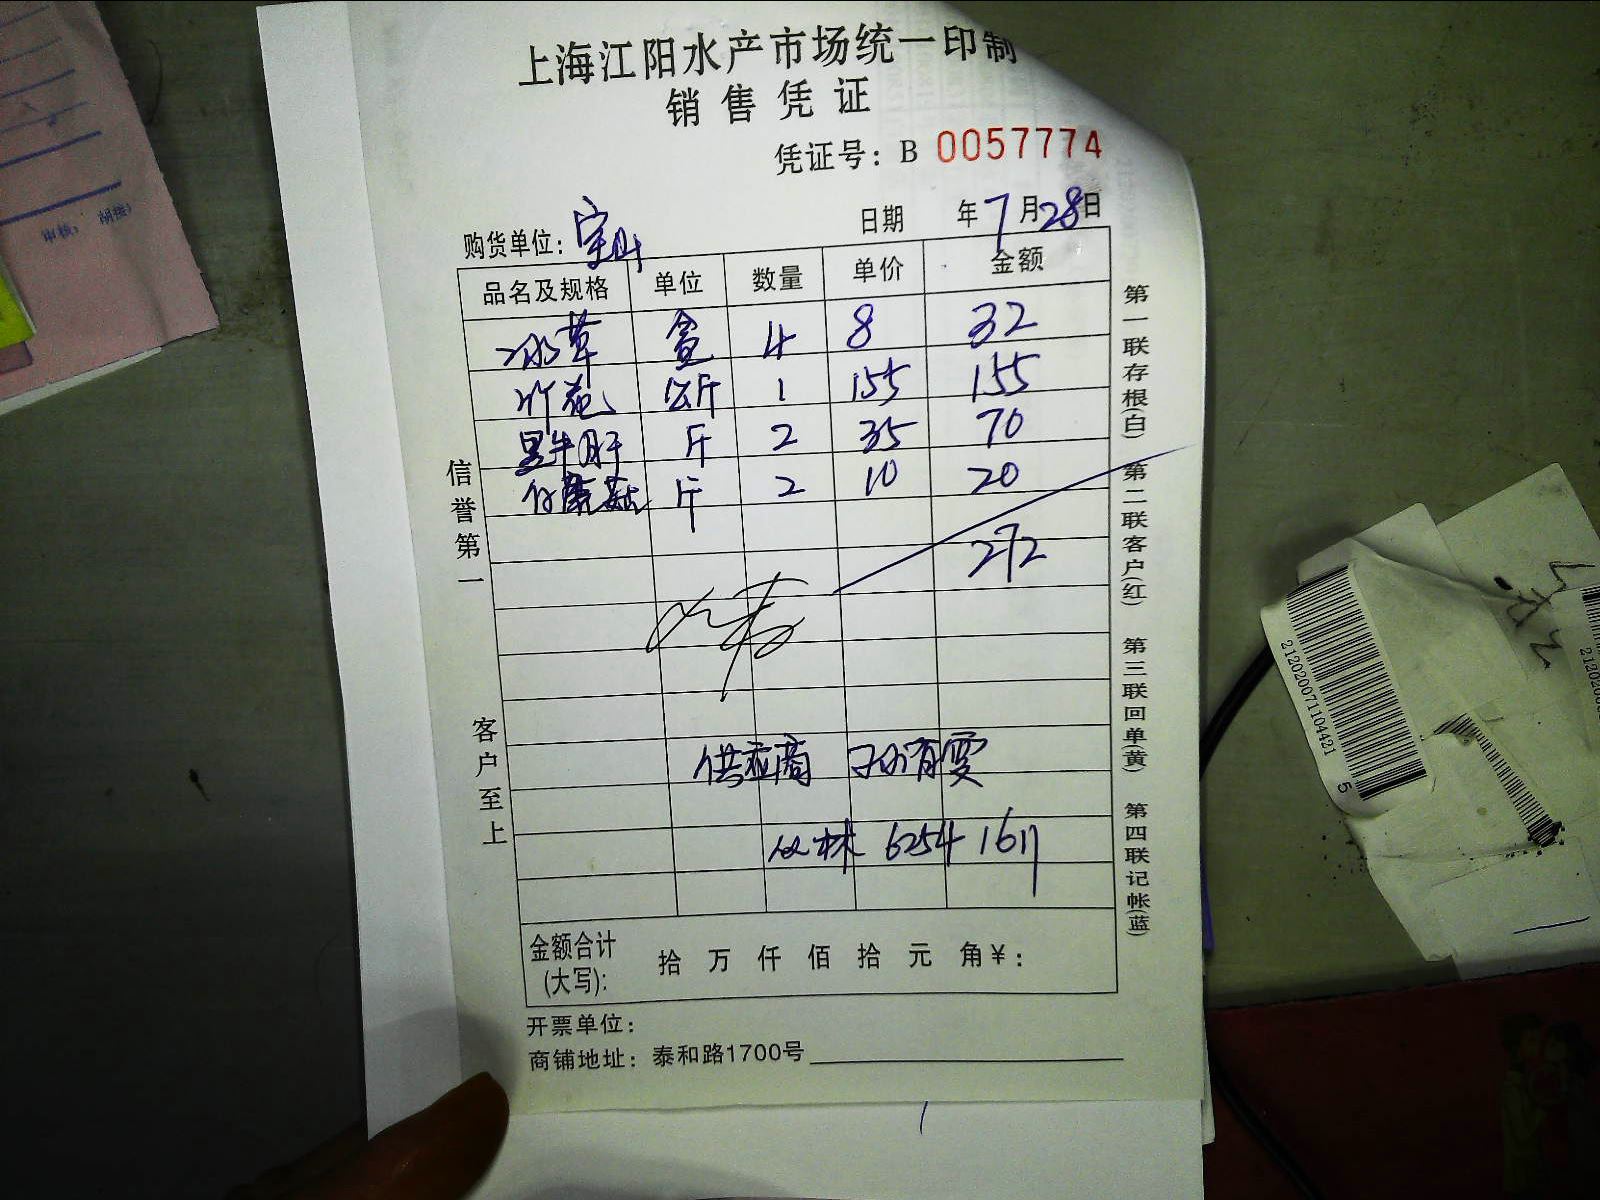 上海江阳水产市场统一印制
销售凭证
凭证号：B 0057774
购货单位：宝山 日期 年7月28日
品名及规格 单位 数量 单价 金额
冰草 盒 4 8 32
竹荪 公斤 1 155 155
黑牛肝 斤 2 35 70
仔蘑菇 斤 2 10 20
272
供应商 孙有雯
丛林 6254 1611
金额合计(大写): 拾 万 仟 佰 拾 元 角￥:
开票单位：
商铺地址：泰和路1700号
信誉第一 客户至上
第一联存根(白) 第二联客户(红) 第三联回单(黄) 第四联记帐(蓝)
2120200711044421 5
审核：